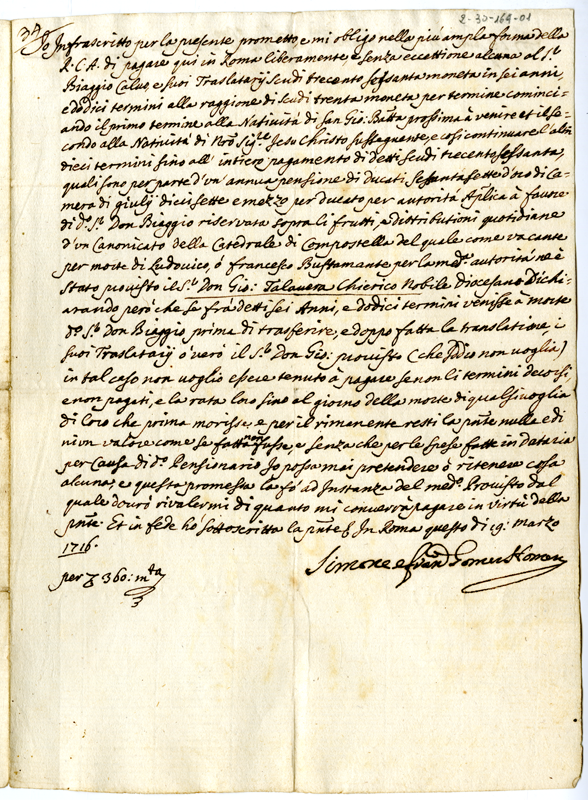 2-30-169-01
34
Io Infrascritto per la presente prometto, e mi obligo nella più ampla forma della
R. C. A. di pagare qui in Roma liberamente, e senza eccettione alcuna al Sr.
Biaggio Calvo, e suoi Traslatarij Scudi trecento sessanta moneta in sei anni,
e dodici termini alla raggione di scudi trenta moneta per termine cominci-
ando il primo termine alla Natività di San Gio: Batta prossima à venire et il se-
condo alla Natività di Nro Sigr. Jeso Christo sussaguente, e cosi continuare l'altri
dieci termini fino all' intiero pagamento di detti scudi trecento sessanta,
quali sono per parte d'un annua pensione di Ducati sessanta sette d'oro di Ca-
mera di giulij diecisette e mezzo per ducato per autorità Aplica à favore
di do. Sr. Don Biaggio riservata sopra li frutti, e distributioni quotidiane
d'un Canonicato della Catedrale di Compostella del quale come vacante
per morte di Ludovico, ó francesco Bustamante per la meda. autorità ne è
stato provisto il Sr. Don Gio: Talavera Chierico Nobile Diocesano Dichi-
arando però che se frà detti sei Anni, e dodici termini venisse à morte
do. Sr. Don Biaggio prima di trasferire, e doppo fatta la translatione, i
suoi Traslatarij ó verò il Sr. Don Gio: provisto (che Iddio non voglia)
in tal caso non voglio essere tenuto à pagare se non li termini decorsi
e non pagati, e la rata loro sino al giorno della morte di qualsivoglia
di loro che prima morisse, e per il rimanente resti la pnte nulla e di
niun valore come se fatta non fusse, e senza che per le spese fatte in Dataria
per Causa di do. Pensionario Io possa mai pretendere ó ritenere cosa
alcuna, e questa promessa la fò ad Instanza del medo. Provisto dal
quale dourò rivalermi di quanto mi converrà pagare in virtù della
pnte. Et in fede hò sottoscritta la pnte In Roma questo di 19: marzo
1716.
per 360: mta
Simone e fran Gomes Homem